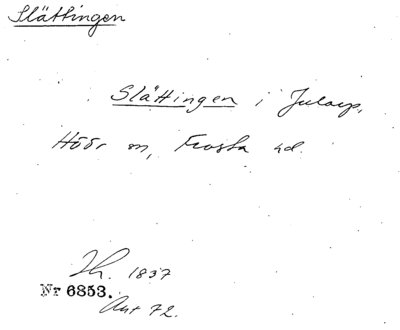 Slättingen
Slättingen i Jularp,
Höör sn, Frosta hd.
Th. 1837
Nr 6853.
Ant 72.